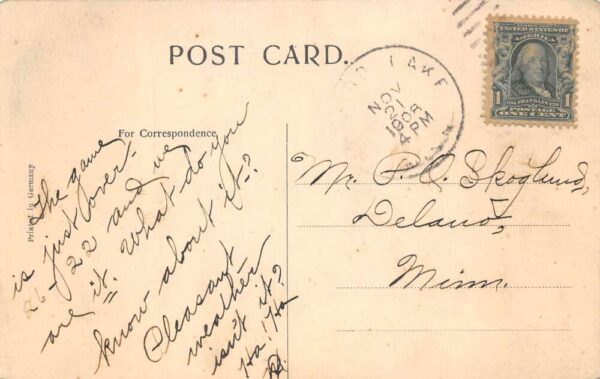 POST CARD.
For Correspondence
Printed in Germany
The game
is just over-
26-22 and we
are it. What do you
know about it-?
Pleasant
weather
isn't it?
Ha! Ha
LAKE
NOV
21
1908
4 PM
MINN
UNITED STATES OF
AMERICA
1 1706-FRANKLIN-1790 1
POSTAGE
ONE CENT
Mr. P.O. Skoglund,
Delano,
Minn.